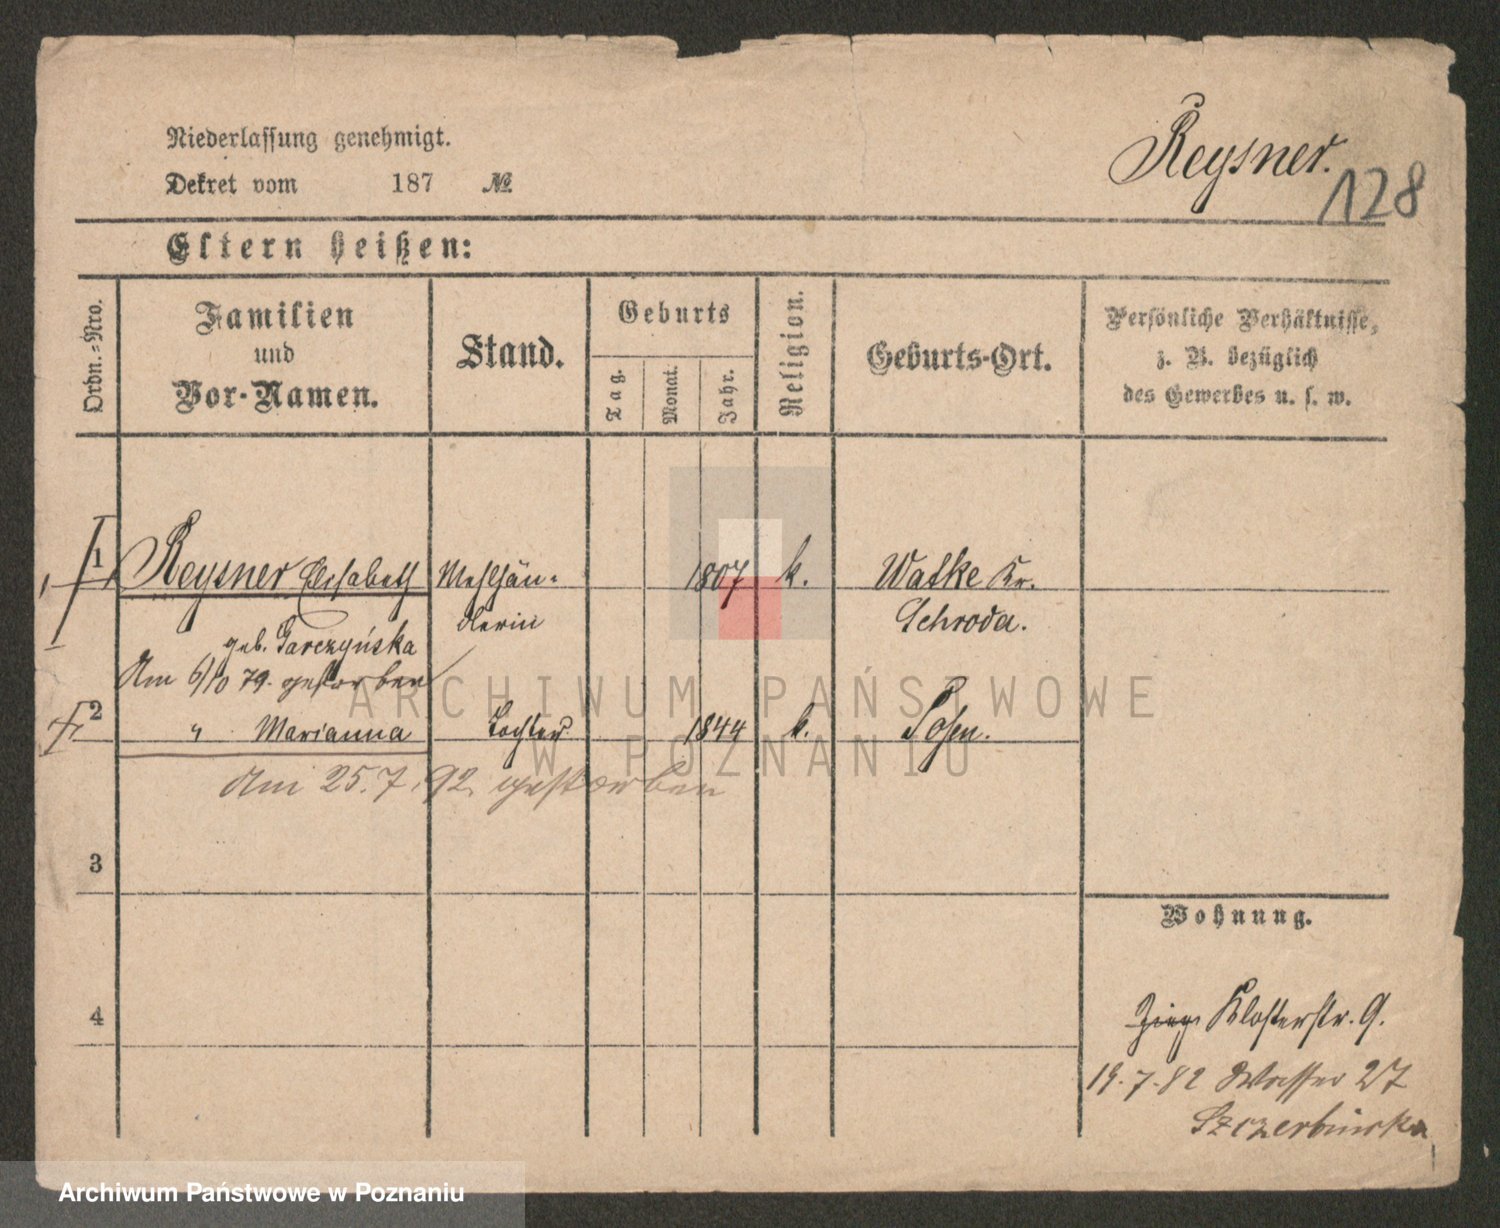 Niederlassung genehmigt.
Dekret vom 187 №
Reysner.
128
Eltern heißen:
Ordn.-Nro.
Familien
und
Vor-Namen.
Stand.
Geburts
Tag.
Monat.
Jahr.
Religion.
Geburts-Ort.
Persönliche Verhältnisse,
z. B. bezüglich
des Gewerbes u. s. w.
1 Reysner Elisabeth Mehlhän- 1807 k. Watke Kr.
geb. Garczyńska dlerin Schroda.
Am 6/10 79. gestorben
2 " Marianna Tochter 1844 k. Posen.
Am 25.7.92 gestorben
3
4
Wohnung.
Klosterstr. 9.
19.7.82 Wasser 27
Szczerbinska
ARCHIWUM PAŃSTWOWE
W POZNANIU
Archiwum Państwowe w Poznaniu